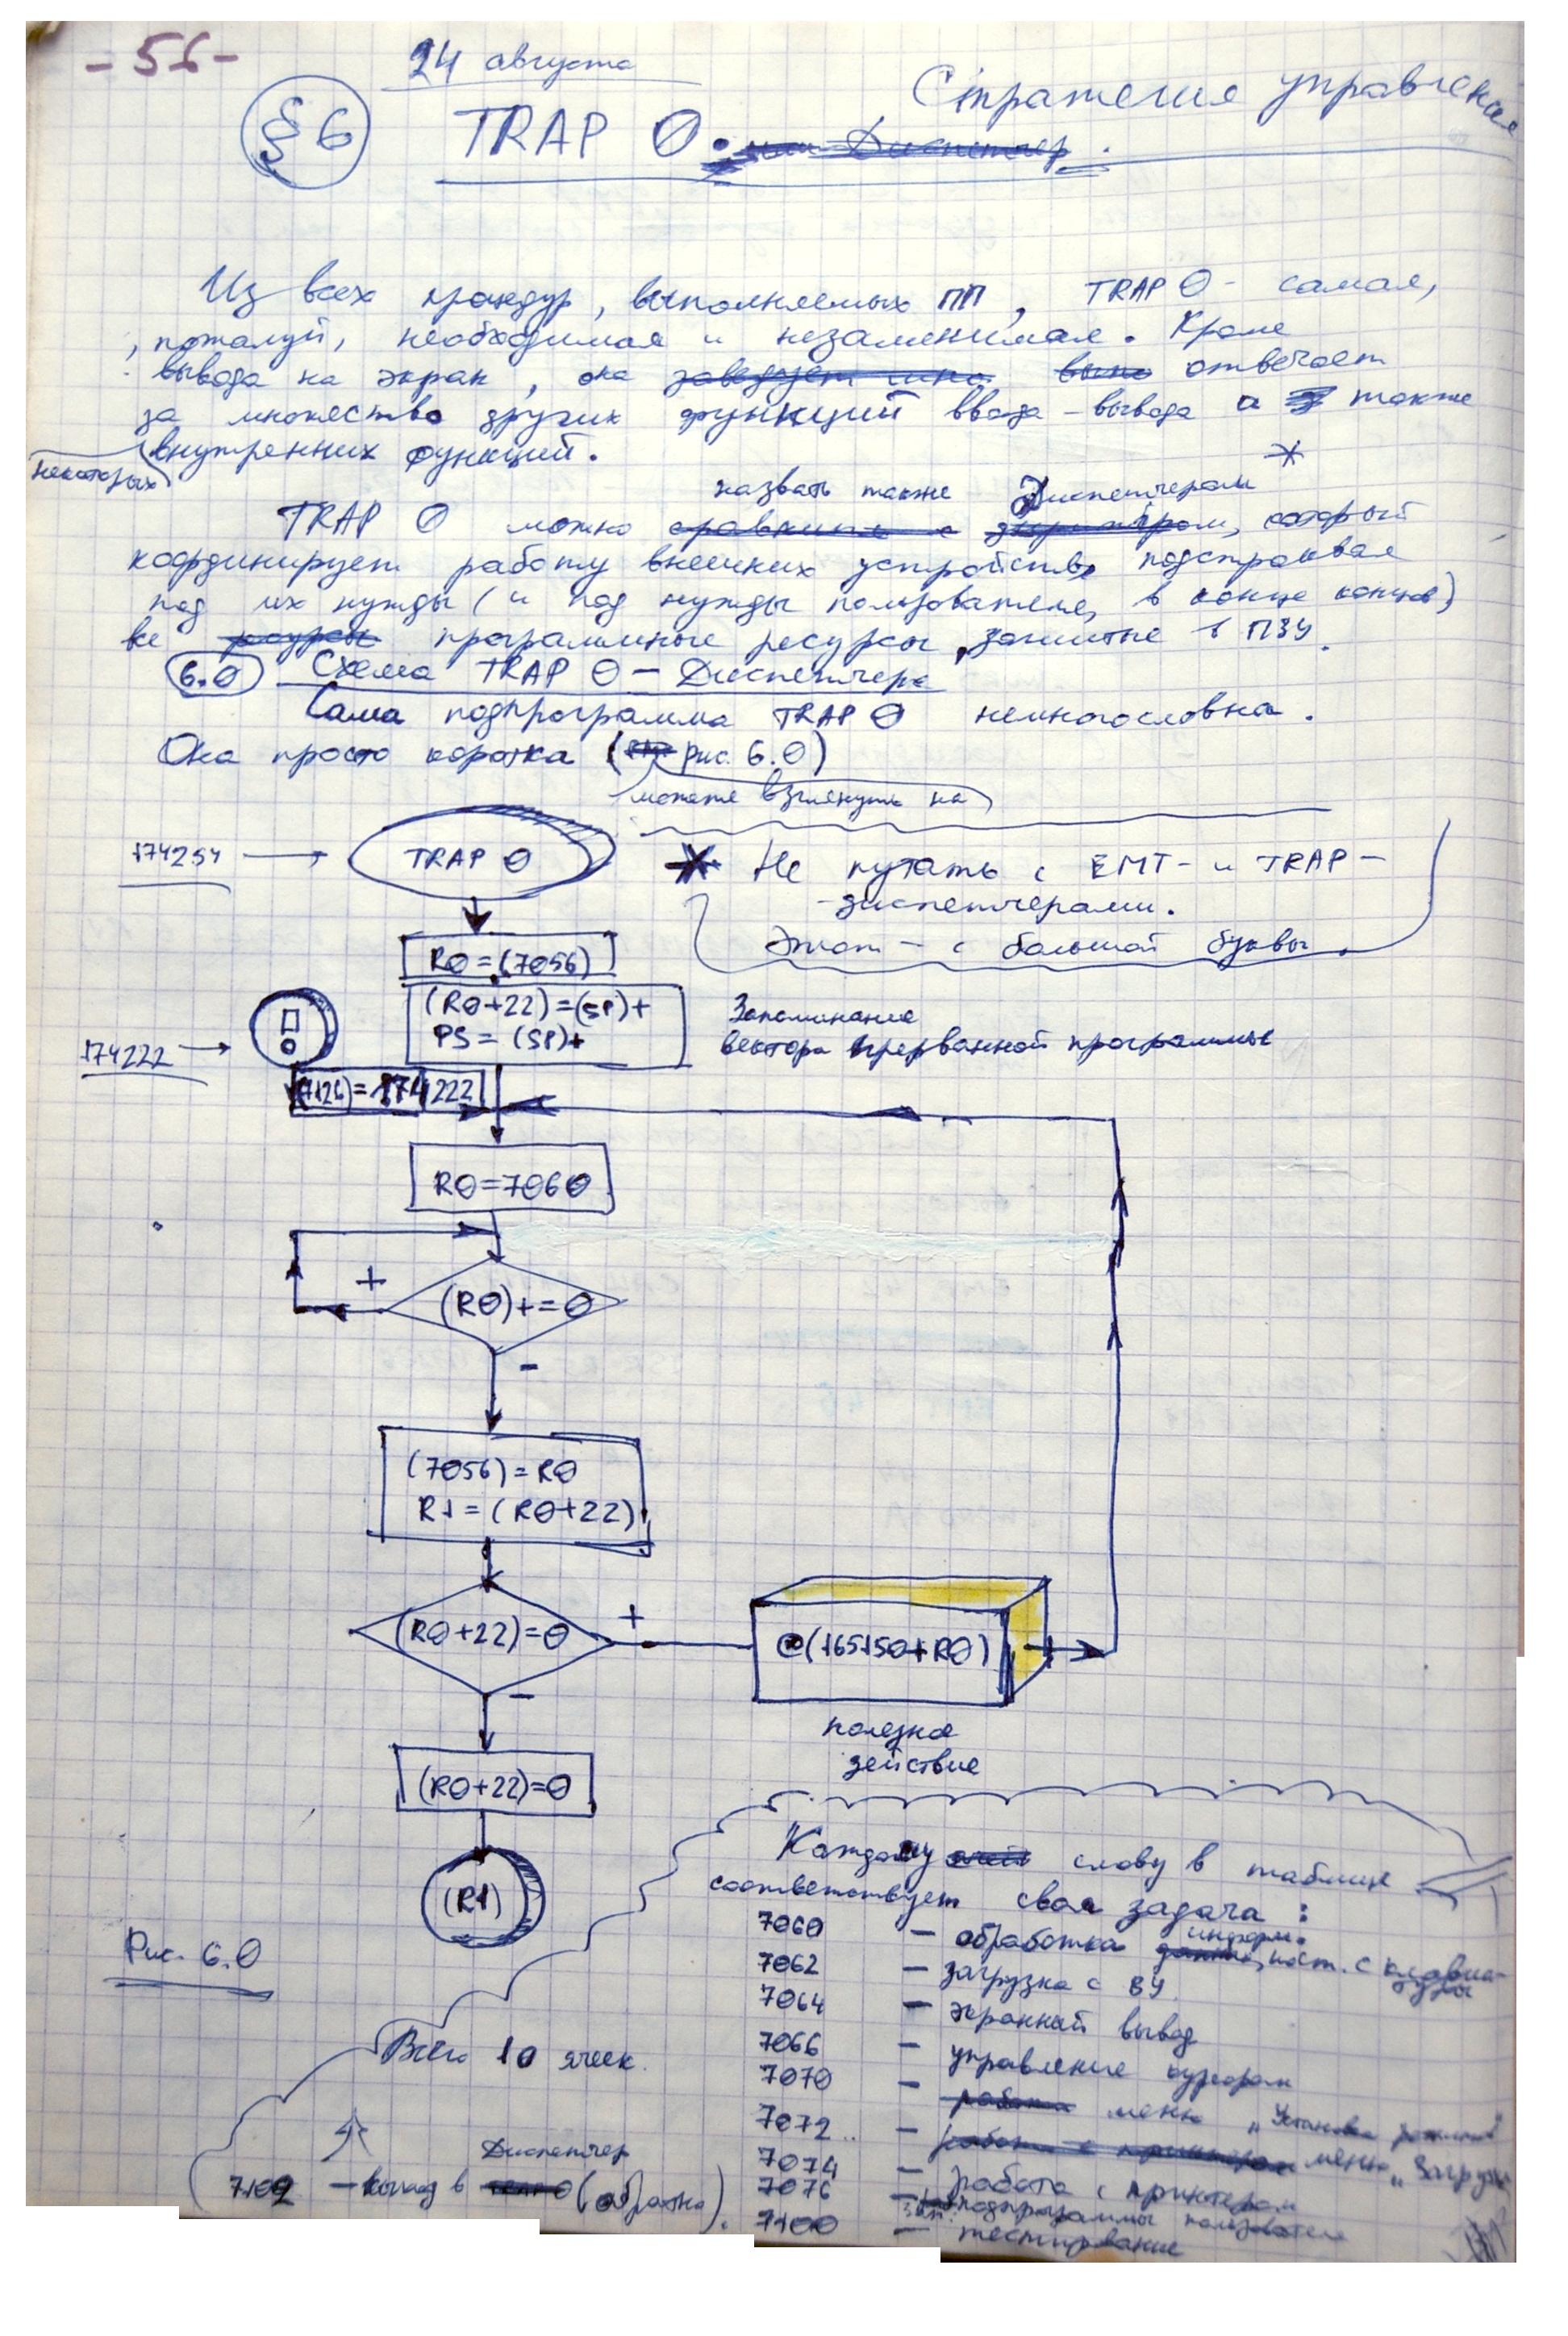 - 56 -
24 августа
Стратегия управления
§ 6 TRAP 0. или Диспетчер.
Из всех процедур, выполняемых ПП, TRAP 0 - самая,
пожалуй, необходимая и незаменимая. Кроме
вывода на экран, она заведует отвечает
за множество других функций ввода-вывода а также
некоторых внутренних функций.
назвать также Диспетчером *
TRAP 0 можно сравнить с, который
координирует работу внешних устройств, подстраивая
под их нужды (и под нужды пользователя, в конце концов)
все ресурсы программные ресурсы, зашитые в ПЗУ.
6.0 Схема TRAP 0 - Диспетчера
Сама подпрограмма TRAP 0 немногословна.
Она просто коротка (рис. 6.0)
можете взглянуть на
174254 TRAP 0
* Не путать с EMT- и TRAP-
диспетчерами.
Этот - с большой буквы.
R0=(7056)
(R0+22)=(SP)+
PS=(SP)+
Запоминание
вектора прерванной программы
174222 !
(7126)=174222
R0=7060
+ (R0)+=0
-
(7056)=R0
R1=(R0+22)
(R0+22)=0 +
@(165150+R0)
полезное
действие
-
(R0+22)=0
(R1)
Рис. 6.0
Каждому слову в таблице
соответствует своя задача:
7060 - обработка информ., пост. с клавиатуры
7062 - загрузка с ВУ
7064 - экранный вывод
7066 - управление курсором
7070 - работа меню "Установка режимов"
7072 - работа с принтером меню "Загрузка
7074 - работа с принтером
7076 - подпрограммы пользователя
7100 - тестирование
Всего 10 ячеек.
7102 - выход в Диспетчер (обратно).